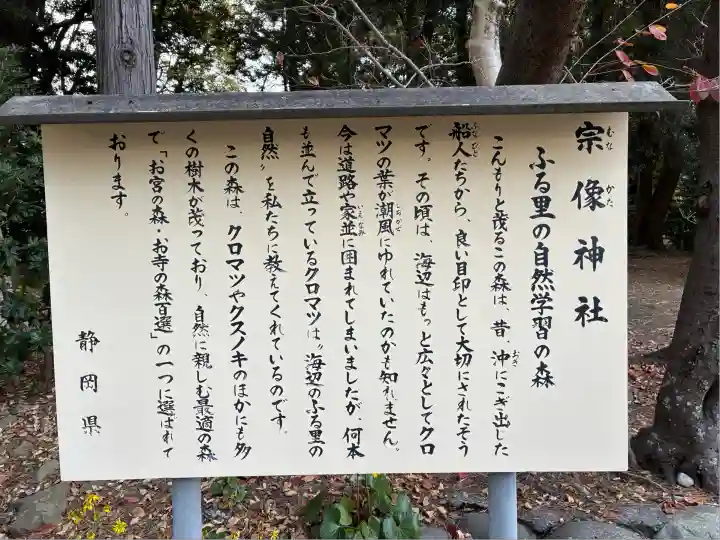 宗像神社
むな かた
ふる里の自然学習の森
こんもりと茂るこの森は、昔、沖にこぎ出した
おき
船人たちから、良い目印として大切にされたそう
ふな びと
です。その頃は、海辺はもっと広々としてクロ
マツの葉が潮風にゆれていたのかも知れません。
しおかぜ
今は道路や家並に囲まれてしまいましたが、何本
いえなみ
も並んで立っているクロマツは〝海辺のふる里の
自然〟を私たちに教えてくれているのです。
この森は、クロマツやクスノキのほかにも多
くの樹木が茂っており、自然に親しむ最適の森
で「お宮の森・お寺の森百選」の一つに選ばれて
おります。
静岡県